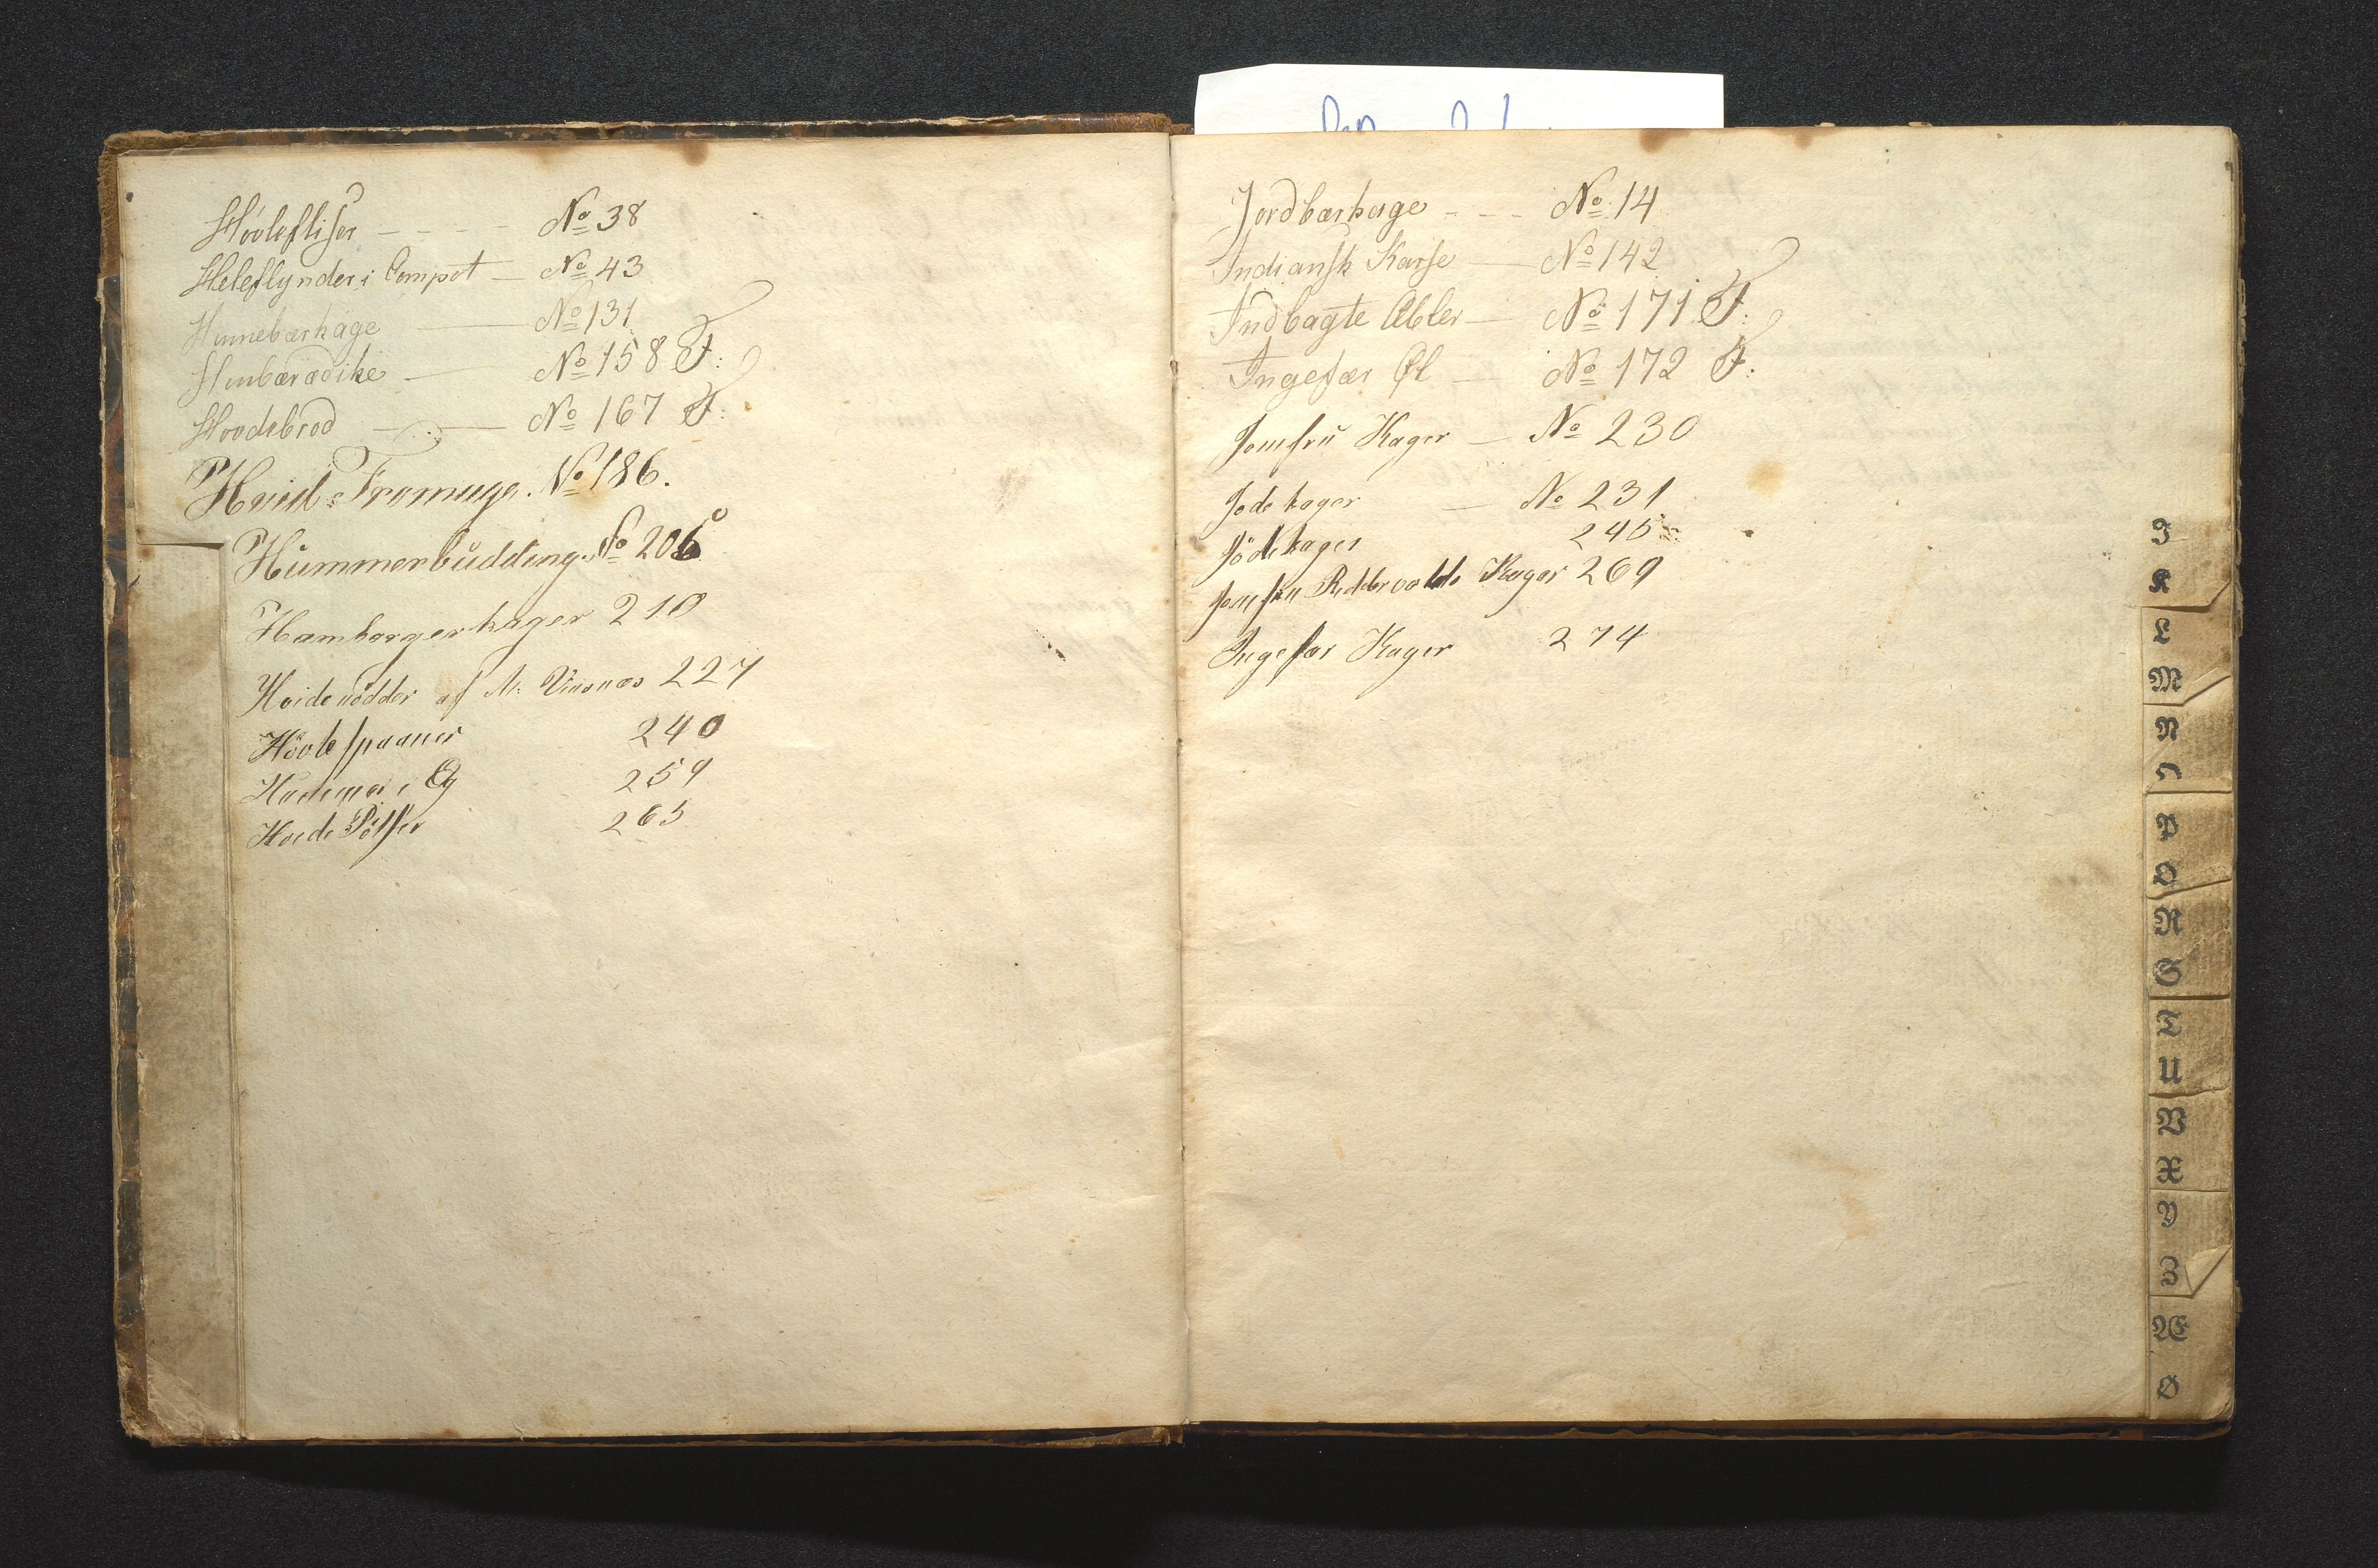 Hövlefliser - - - - № 38
Heleflynder i Compot — № 43
Hinnebærkage — № 131
Hinbæradike — № 158 F:
Hvedebrod — № 167 F:
Hvid Fromage. № 186.
Hummerbudding. № 206
Hamborgerkager 210
Hvidenödder af M: Vinsnæs 227
Hövlespaaner 240
i Eg 259
Hvede Pölser 265
Jordbærkage - - - № 14
Indiansk Karse — № 142
Indbagte Æbler — № 171 F:
Ingefær Øl — № 172 F:
Jomfru Kager — № 230
Jödekager — № 231
Jödekager 245
Jomfru Reddervolds Kager 269
Ingefær Kager 274
I
K
L
M
N
O
P
Q
R
S
T
U
V
X
Y
Z
Æ
Ø